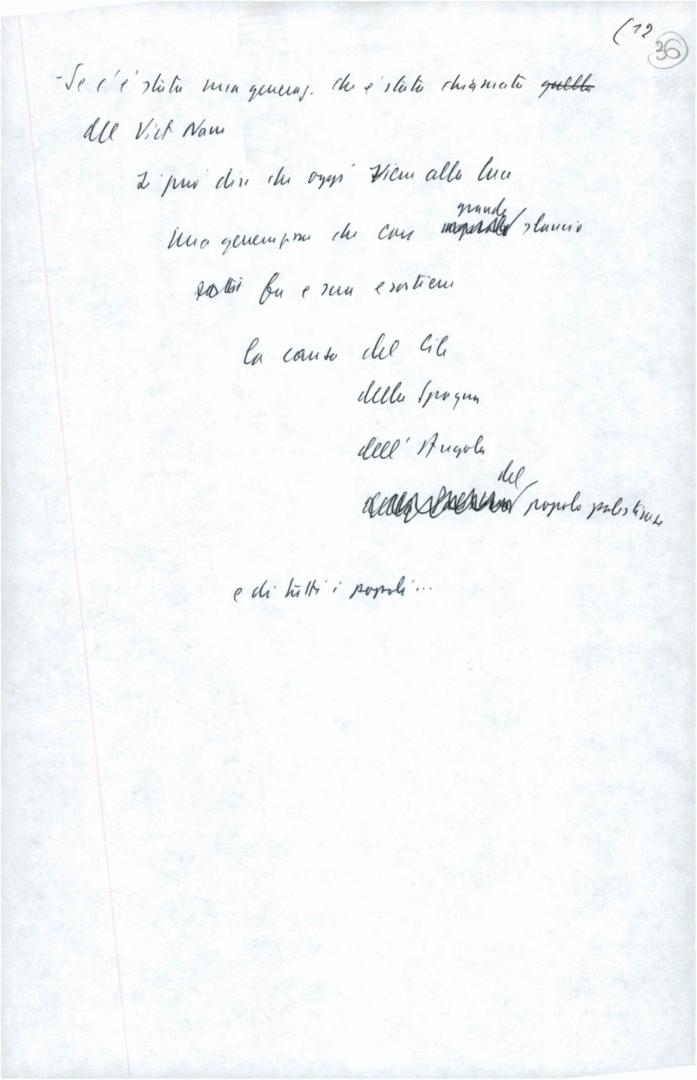 (12
36
- Se c'è stata una generaz. che è stata chiamata quella
del Viet Nam
Si può dire che oggi viene alla luce
una generazione che con grande slancio
fa e sua e sostiene
la causa del Cile
della Spagna
dell'Angola
del popolo palestinese
e di tutti i popoli...